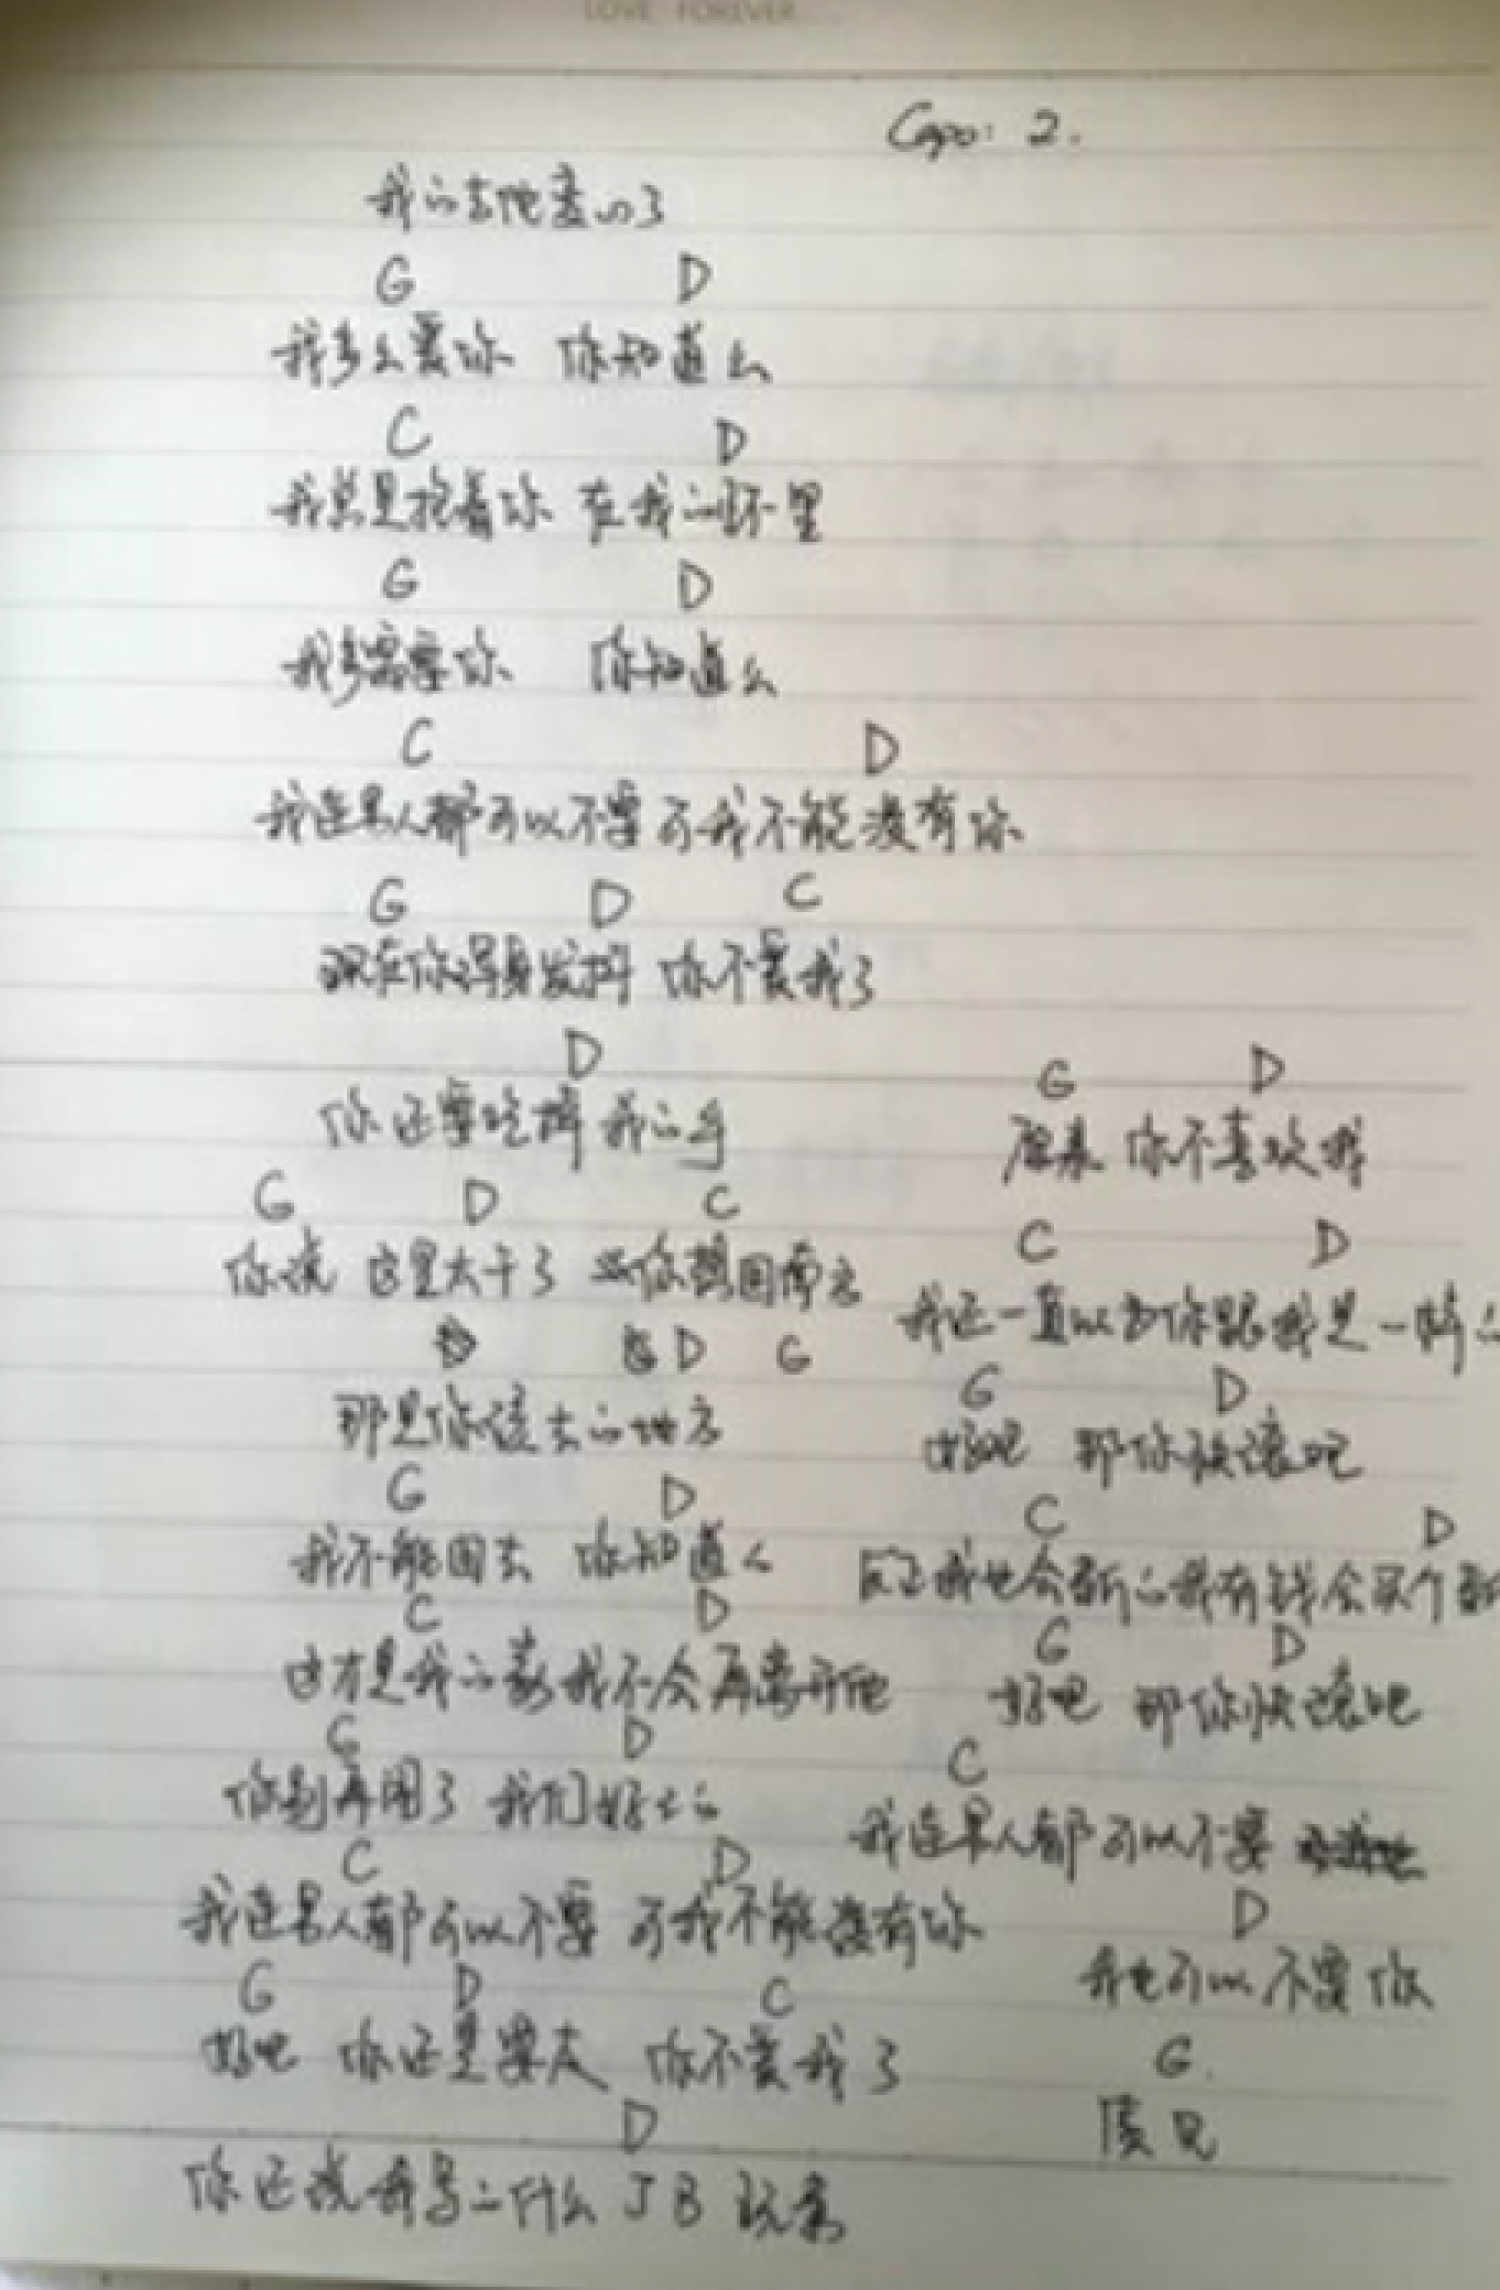 LOVE FOREVER...
Capo: 2.
我的吉他裂了
G D
我多么爱你 你知道么
C D
我总是抱着你 在我的怀里
G D
我多需要你 你知道么
C D
我连男人都可以不要 可我不能没有你
G D C
现在你浑身发抖 你不爱我了
D
你还要吃掉我的手
G D C
你说 这里太干了 你想回南方
D G
那是你该去的地方
G D
我不能回去 你知道么
C D
这才是我的家 我不会再离开他
G D
你别再闹了 我们好好的
C D
我连男人都可以不要 可我不能没有你
G D C
好吧 你还是要走 你不爱我了
D
你还说我写的什么JB玩意
G D
原来 你不喜欢我
C D
我还一直以为你跟我是一样的
G D
好吧 那你快滚吧
C D
反正我也会 我有钱会买个新
G D
好吧 那你快滚吧
C
我连男人都可以不要
D
我也可以不要你
G.